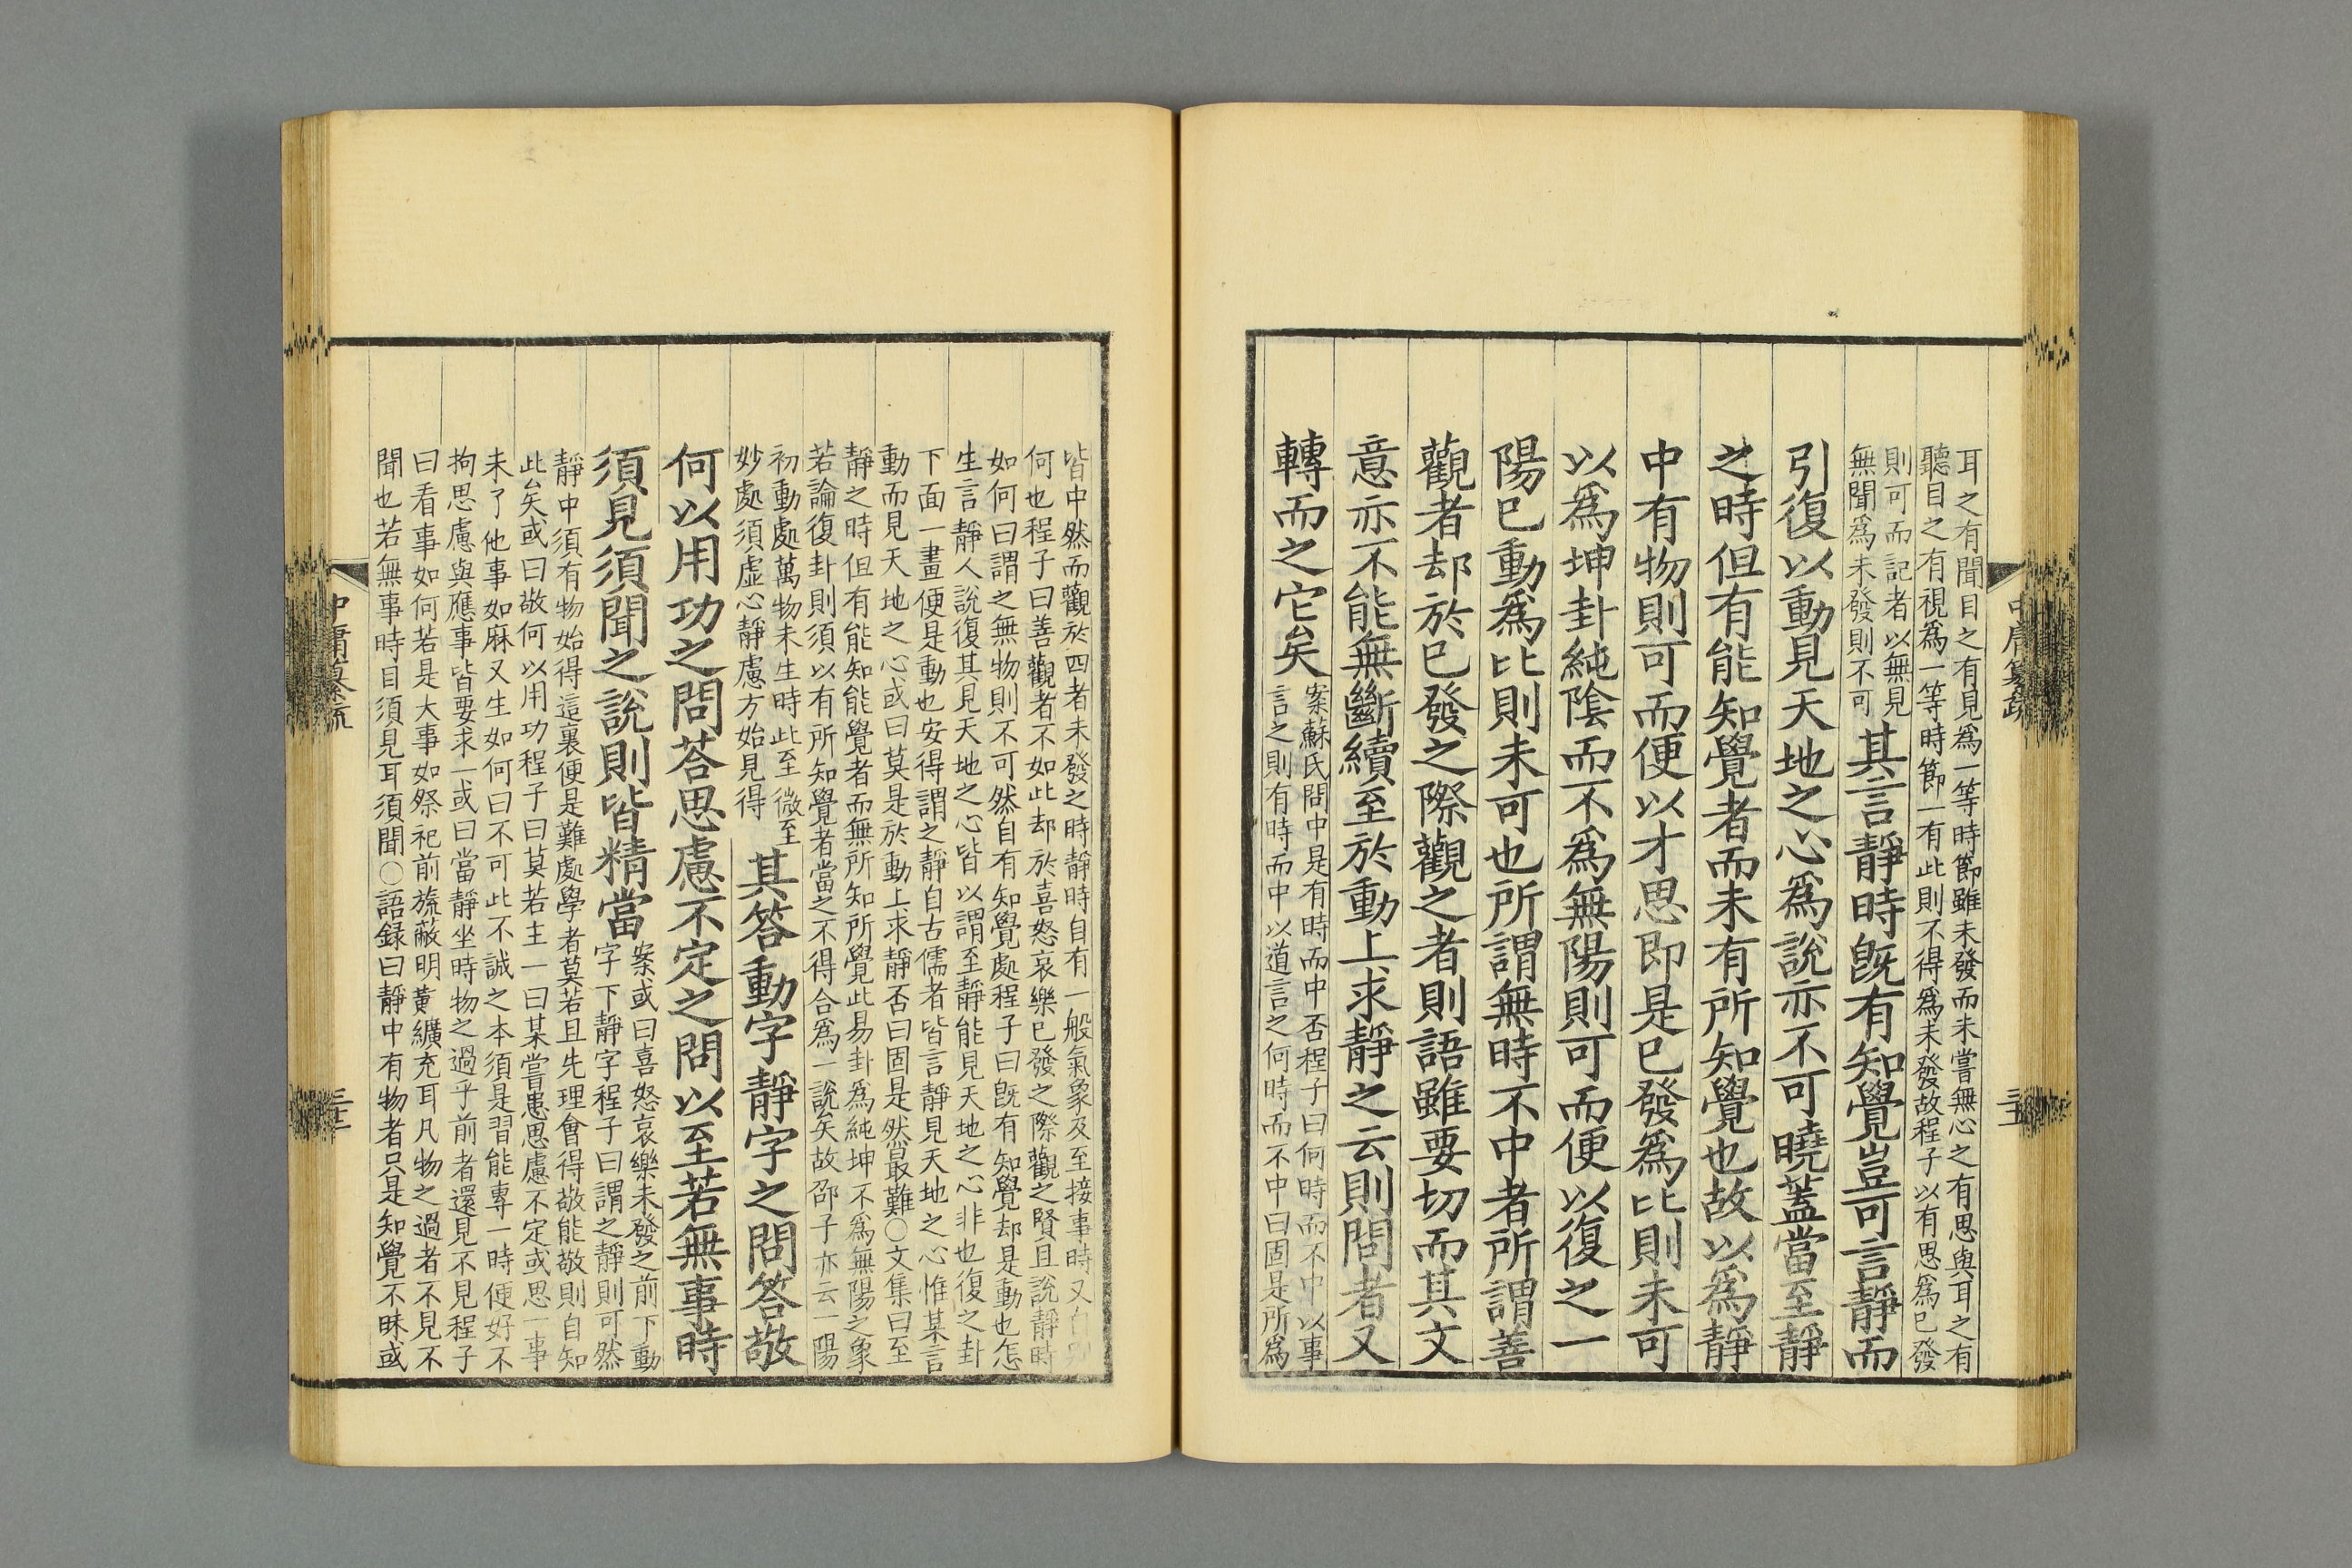 耳之有聞目之有見爲一等時節雖未發而未嘗無心之有思與耳之有
聽目之有視爲一等時節一有此則不得爲未發故程子以有思爲已發
則可而記者以無見
無聞爲未發則不可
其言靜時旣有知覺豈可言靜而
引復以動見天地之心爲說亦不可曉蓋當至靜
之時但有能知覺者而未有所知覺也故以爲靜
中有物則可而便以才思即是已發爲比則未可
以爲坤卦純陰而不爲無陽則可而便以復之一
陽已動爲比則未可也所謂無時不中者所謂善
觀者却於已發之際觀之者則語雖要切而其文
意亦不能無斷續至於動上求靜之云則問者又
轉而之它矣
案蘇氏問中是有時而中否程子曰何時而不中以事
言之則有時而中以道言之何時而不中曰固是所爲
皆中然而觀於四者未發之時靜時自有一般氣象及至接事時又自別
何也程子曰善觀者不如此却於喜怒哀樂已發之際觀之賢且說靜時
如何曰謂之無物則不可然自有知覺處程子曰旣有知覺却是動也怎
生言靜人說復其見天地之心皆以謂至靜能見天地之心非也復之卦
下面一畫便是動也安得謂之靜自古儒者皆言靜見天地之心惟某言
動而見天地之心或曰莫是於動上求靜否曰固是然最難○文集曰至
靜之時但有能知能覺者而無所知所覺此易卦爲純坤不爲無陽之象
若論復卦則須以有所知覺者當之不得合爲一說矣故邵子亦云一陽
初動處萬物未生時此至微至
妙處須虛心靜慮方始見得
其答動字靜字之問答敬
何以用功之問荅思慮不定之問以至若無事時
須見須聞之說則皆精當
案或曰喜怒哀樂未發之前下動
字下靜字程子曰謂之靜則可然
靜中須有物始得這裏便是難處學者莫若且先理會得敬能敬則自知
此矣或曰敬何以用功程子曰莫若主一曰某嘗患思慮不定或思一事
未了他事如麻又生如何曰不可此不誠之本須是習能專一時便好不
拘思慮與應事皆要求一或曰當靜坐時物之過乎前者還見不見程子
曰看事如何若是大事如祭祀前旒蔽明黃纊充耳凡物之過者不見不
聞也若無事時目須見耳須聞○語録曰靜中有物者只是知覺不昧或